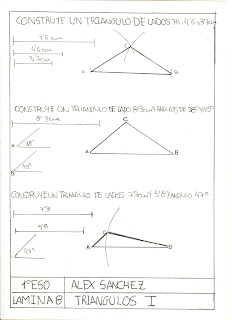 CONSTRUYE UN TRIANGULO DE LADOS 7'6, 4'6 y 3'7cm
7'6 cm
4'6 cm
3'7cm
C
A B
CONSTRUYE UN TRIANGULO DE LADO 8'3cm Y ANGULOS DE 38º Y 45º
8'3cm
C
A 38º
A B
B 45º
CONSTRUYE UN TRIANGULO DE LADOS 7'3cm Y 5'8 Y ANGULO 47º
7'3
5'8
C
47º
A B
1ºESO ALEX SANCHEZ
LAMINA 8 TRIANGULOS I